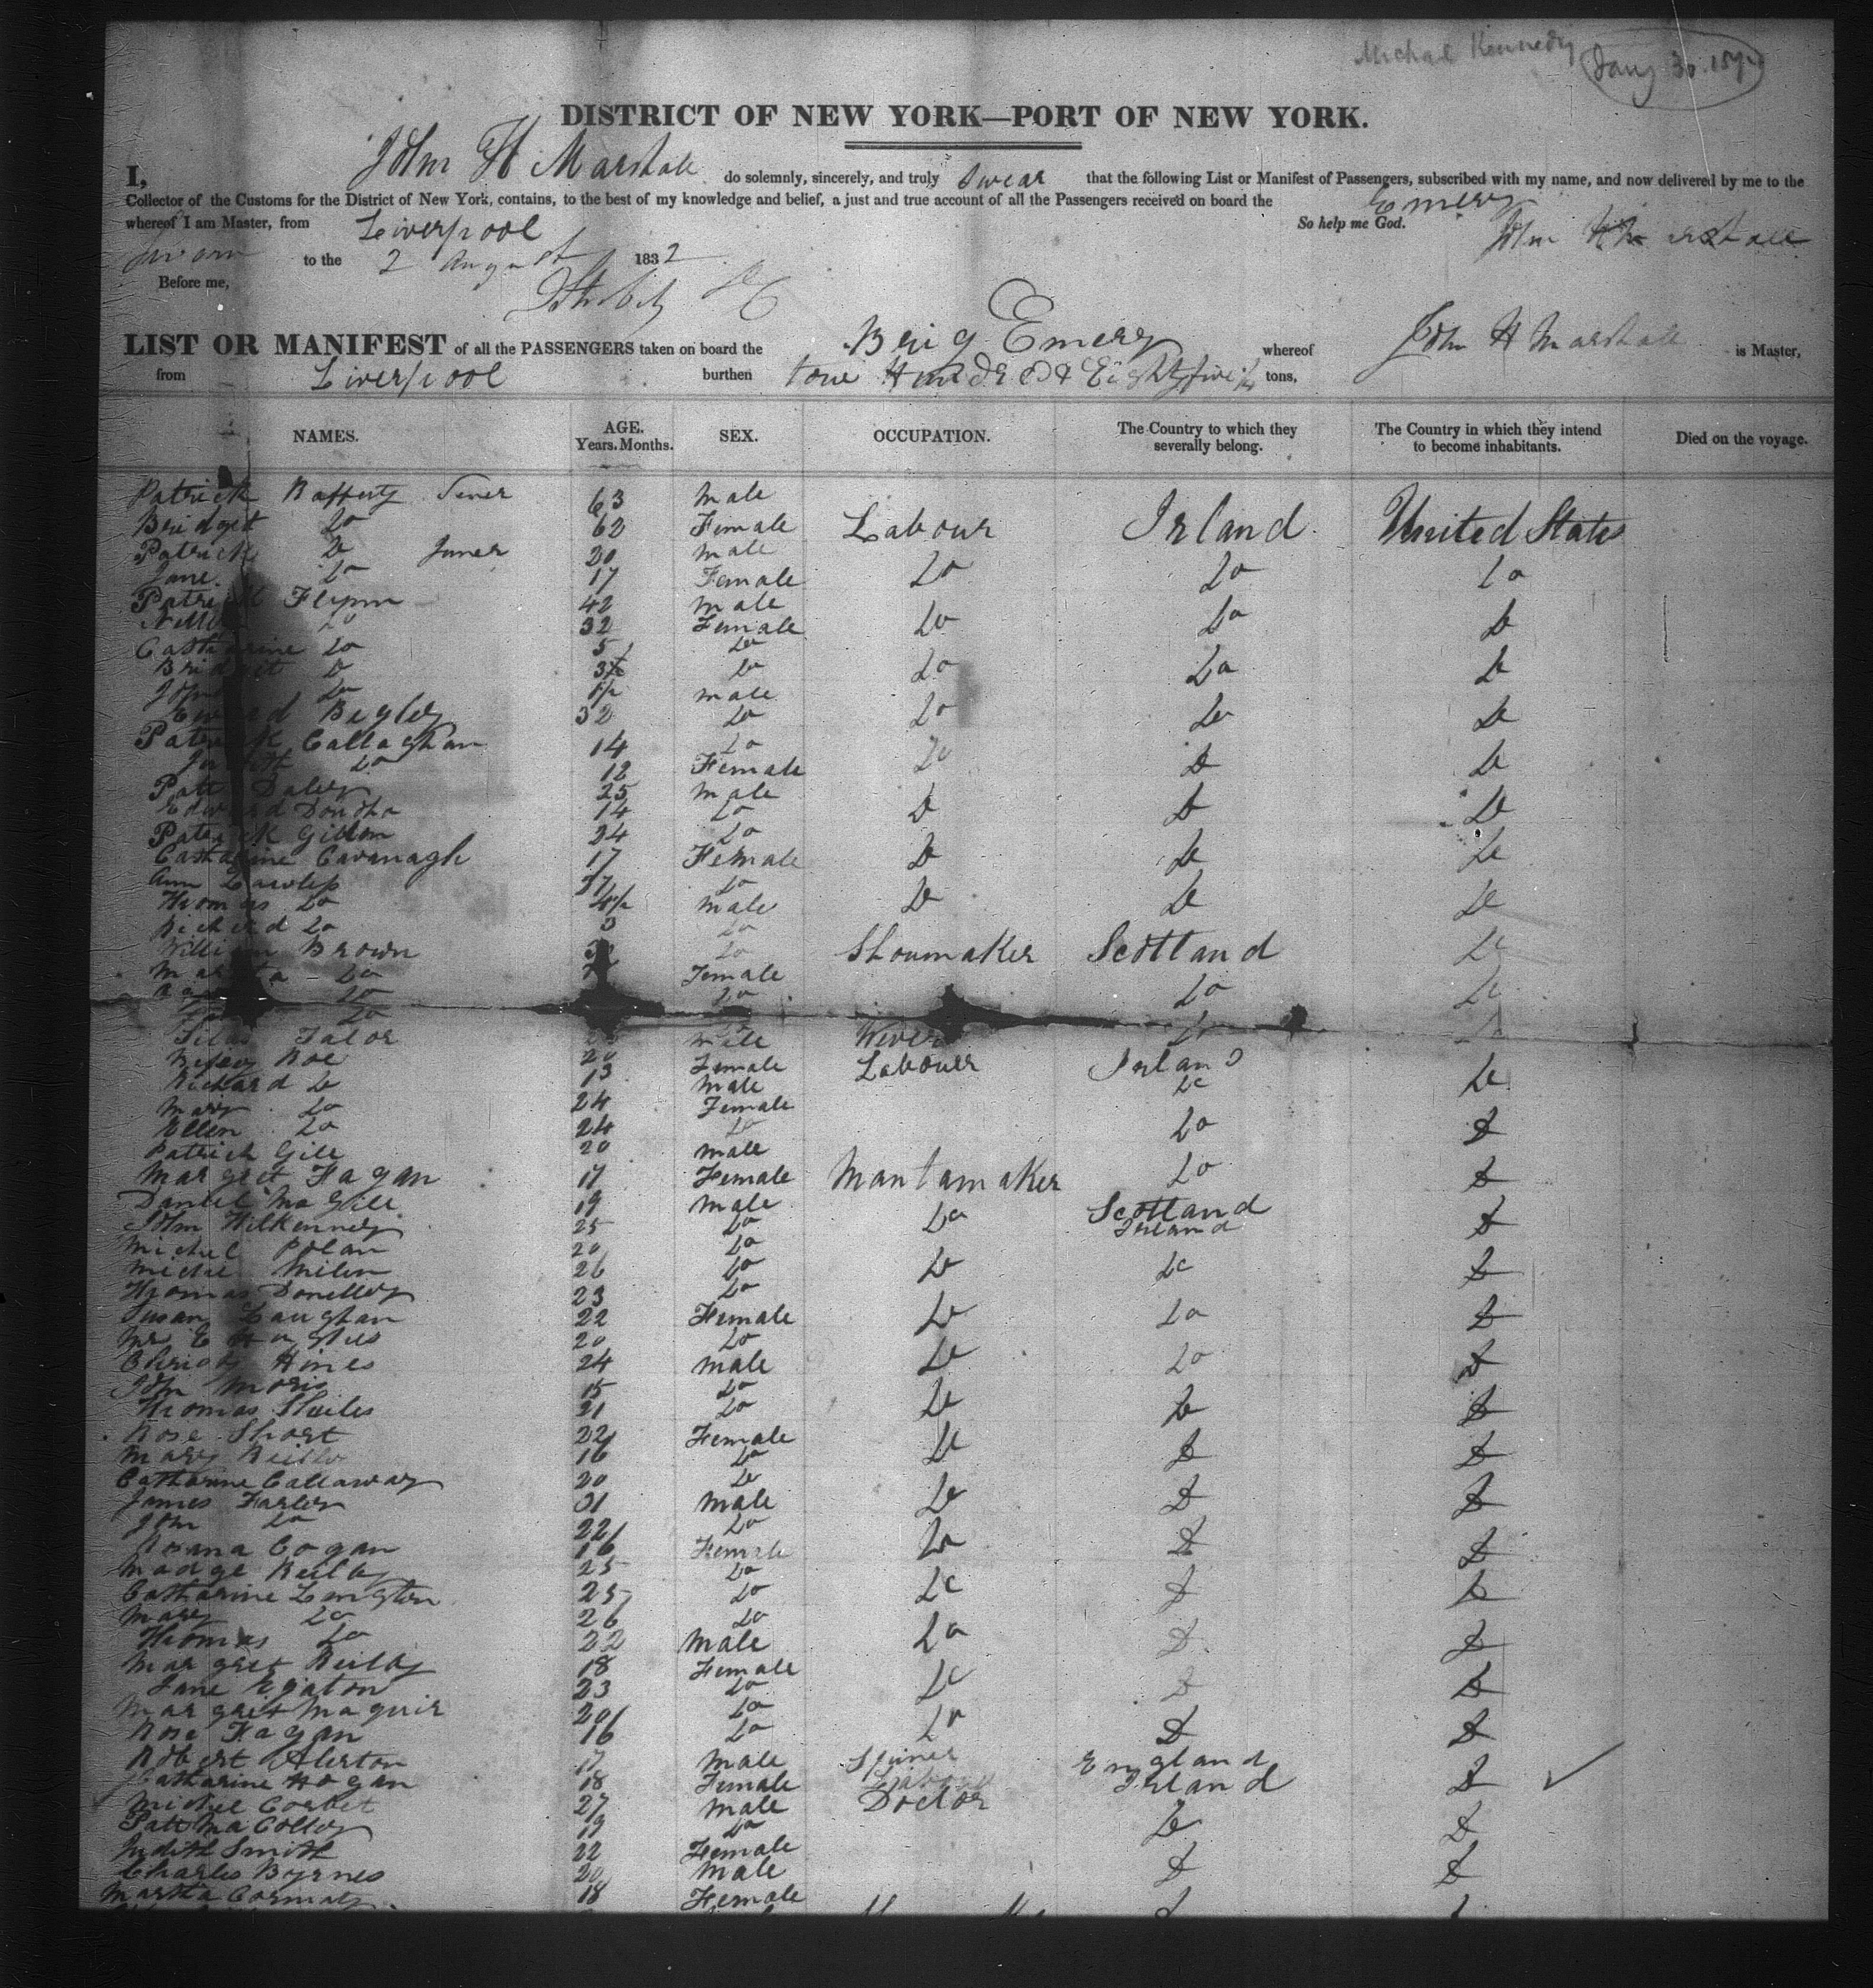 Michael Kennedy
DISTRICT OF NEW YORK—PORT OF NEW YORK.
I, John H Marshall do solemnly, sincerely, and truly Swear that the following List or Manifest of Passengers, subscribed with my name, and now delivered by me to the
Collector of the Customs for the District of New York, contains, to the best of my knowledge and belief, a just and true account of all the Passengers received on board the Emery
whereof I am Master, from Liverpool So help me God.
Sworn to the 2 August 1832 John H Marshall
Before me,
LIST OR MANIFEST of all the PASSENGERS taken on board the Brig Emery whereof John H Marshall is Master,
from Liverpool burthen tons,
NAMES. AGE. Years. Months. SEX. OCCUPATION. The Country to which they severally belong. The Country in which they intend to become inhabitants. Died on the voyage.
Patrick Rafferty Sener 63 Male
Bridget Do 62 Female Labour Irland United States
Patrick Do Juner 20 Male
Jane Do 17 Female Do Do Do
Patrick Flynn 42 Male
32 Female Do Do Do
Catharine Do 5 Do
Bridget Do Do Do Do Do
John Do Male
Begley 32 Do Do Do Do
Patrick Callaghan 14 Do
Do 12 Female Do Do Do
Patt Daley 25 Male
Edward 14 Do Do Do Do
Patrick Gillon 24 Do
Catharine Cavanagh 17 Female Do Do Do
Ann Lawless Do
Thomas Do Male Do Do Do
Richard Do 3 Do
William Brown Do Shoumaker Scotland Do
Do Female
Do Do Do Do
Do
Silas Talor Male Wever Do
Roe 20 Female Labour Irland
Richard Do 13 Male Do Do
Mary Do 24 Female
Ellen Do 24 Do Do Do
Patrick Gill 20 Male
Margret Fagan 17 Female Mantamaker Do Do
Daniel Ma Gill 19 Male Scotland
John Kilkenney 25 Do Do Irland Do
Michel 20 Do
26 Do Do Do Do
Thomas Donelley 23 Do
Susan Laughan 22 Female Do Do Do
20 Do
Hines 24 Male Do Do Do
John Moris 15 Do
Thomas Sheiles 21 Do Do Do Do
Rose Short 22 Female
Mary Reilly 16 Do Do Do Do
Catharine Callaway 20 Do
James Farley 31 Male Do Do Do
John Do 22 Do
Cogan 16 Female Do Do Do
Madge Reilly 25 Do
Catharine Lengton 25 Do Do Do Do
Mary Do 26 Do
Thomas Do 22 Male Do Do Do
Margret Reilly 18 Female
Jane Egaton 23 Do Do Do Do
Margret Maguir 20 Do
Rose Fagan 16 Do Do Do Do
Robert Alerton 17 Male Spiner England
Catharine Hogan 18 Female Labour Irland Do
Michel Corbet 27 Male Doctor
Patt Ma Colley 19 Do Do Do
Judith Smith 22 Female
Charles Byrnes 20 Male Do Do
Martha 18 Female